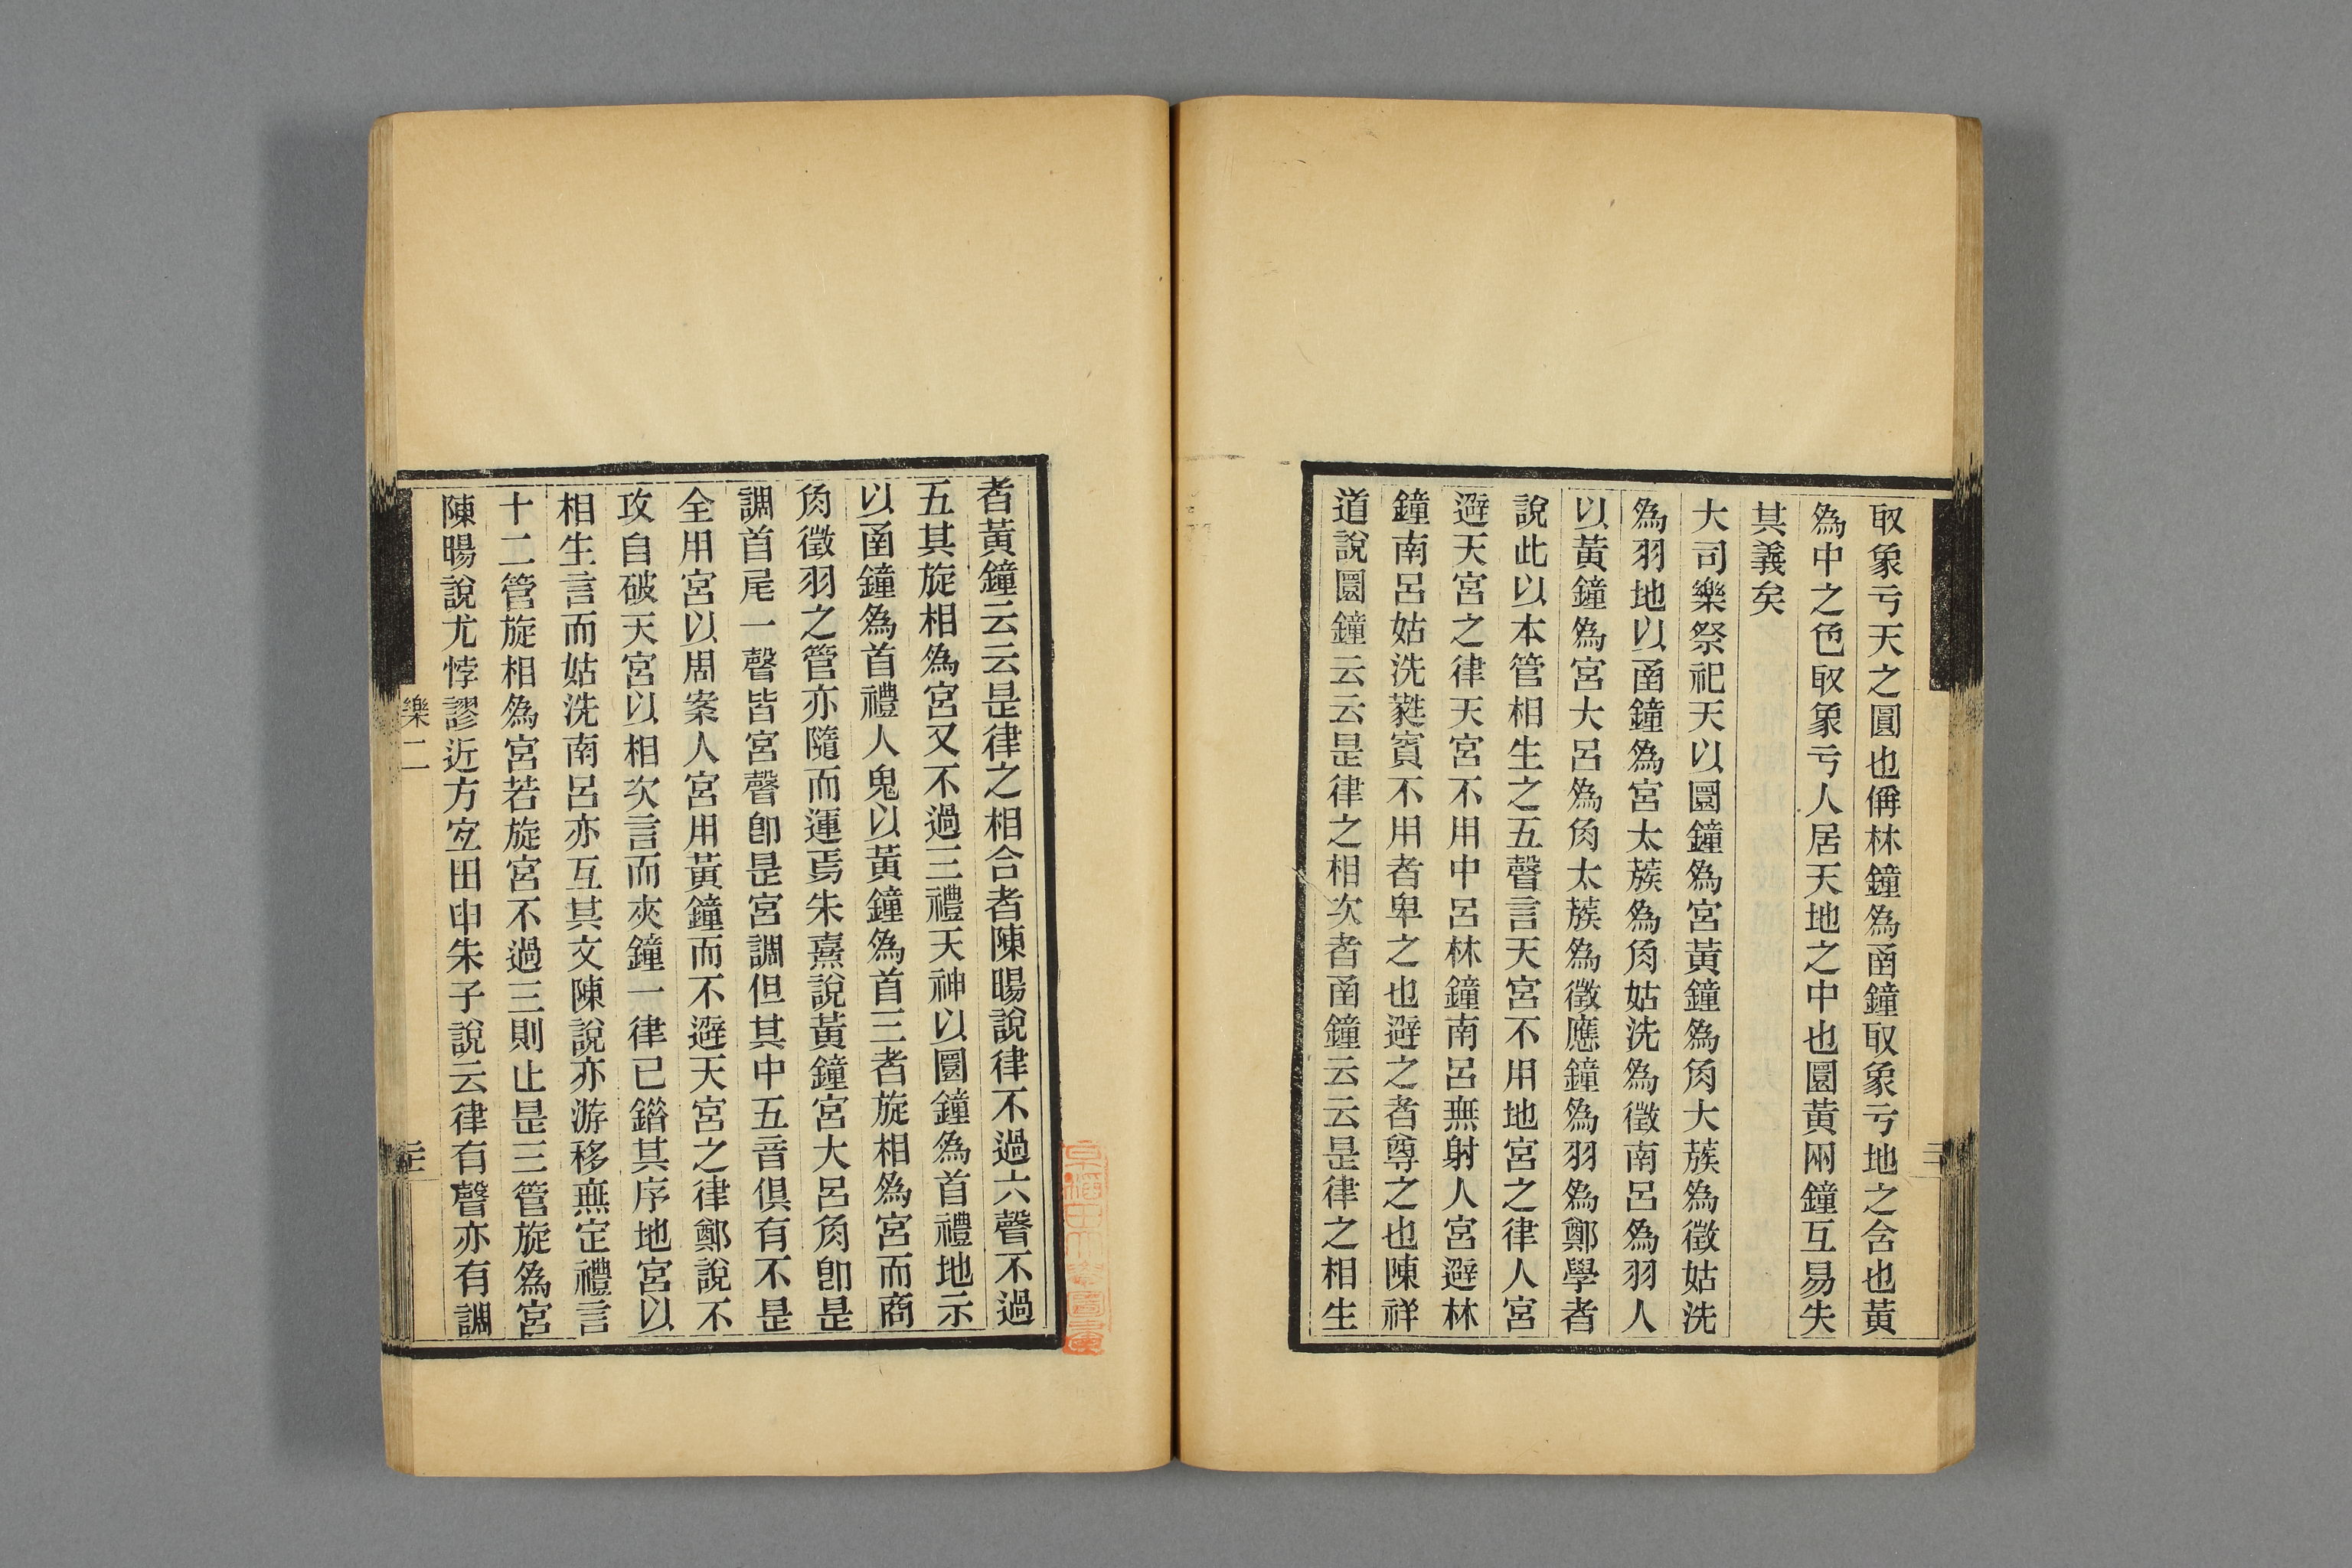 取象亏天之圓也偁林鐘為函鐘取象亏地之含也黃
為中之色取象亏人居天地之中也圜黃兩鐘互易失
其義矣
大司樂祭祀天以圜鐘為宮黃鐘為角大蔟為徵姑洗
為羽地以函鐘為宮太蔟為角姑洗為徵南呂為羽人
以黃鐘為宮大呂為角太蔟為徵應鐘為羽為鄭學者
說此以本管相生之五聲言天宮不用地宮之律人宮
避天宮之律天宮不用中呂林鐘南呂無射人宮避林
鐘南呂姑洗蕤賓不用者卑之也避之者尊之也陳祥
道說圜鐘云云是律之相次者函鐘云云是律之相生
者黃鐘云云是律之相合者陳暘說律不過六聲不過
五其旋相為宮又不過三禮天神以圜鐘為首禮地示
以函鐘為首禮人鬼以黃鐘為首三者旋相為宮而商
角徵羽之管亦隨而運焉朱熹說黃鐘宮大呂角卽是
調首尾一聲皆宮聲卽是宮調但其中五音俱有不是
全用宮以周案人宮用黃鐘而不避天宮之律鄭說不
攻自破天宮以相次言而夾鐘一律已錯其序地宮以
相生言而姑洗南呂亦互其文陳說亦游移無定禮言
十二管旋相為宮若旋宮不過三則止是三管旋為宮
陳暘說尤悖謬近方宖田申朱子說云律有聲亦有調
樂二